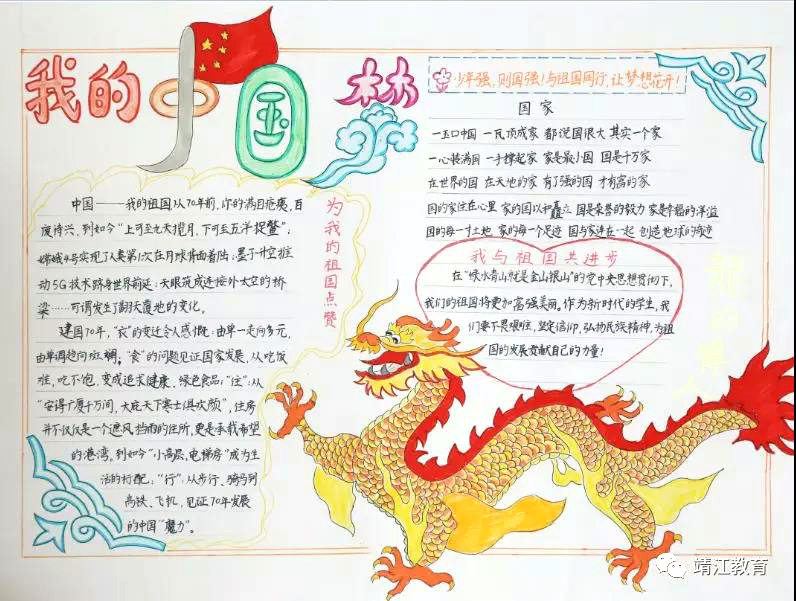 我的中国梦
少年强,则国强!与祖国同行,让梦想花开!
国家
一玉口中国 一瓦顶成家 都说国很大 其实一个家
一心装满国 一手撑起家 家是最小国 国是千万家
在世界的国 在天地的家 有了强的国 才有富的家
国的家住在心里 家的国以和矗立 国是荣誉的毅力 家是幸福的洋溢
国的每一寸土地 家的每一个足迹 国与家连在一起 创造地球的奇迹
我与祖国共进步
在“绿水青山就是金山银山”的党中央思想贯彻下,
我们的祖国将更加高强美丽。作为新时代的学生,我
们要不畏艰难,坚定信仰,弘扬民族精神,为祖
国的发展贡献自己的力量!
为我的祖国点赞
中国——我的祖国从70年前,你的满目疮痍,百
废待兴,到如今“上可至九天揽月,下可赴五洋捉鳖”;
嫦娥4号实现了人类第1次在月球背面着陆;墨子升空推
动5G技术跻身世界前延;天眼筑成连接外太空的桥
梁……可谓发生了翻天覆地的变化。
建国70年,“衣”的变迁令人感慨:由单一走向多元,
由单调趋向斑斓。“食”的问题见证国家发展,从吃饭
难,吃不饱,变成追求健康、绿色食品;“住”:从
“安得广厦千万间,大庇天下寒士俱欢颜”,住房
并不仅仅是一个遮风挡雨的住所,更是承载希望
的港湾,到如今“小高层,电梯房”成为生
活的标配;“行”:从步行、骑马到
高铁、飞机,见证70年发展
的中国“魔力”。
靖江教育